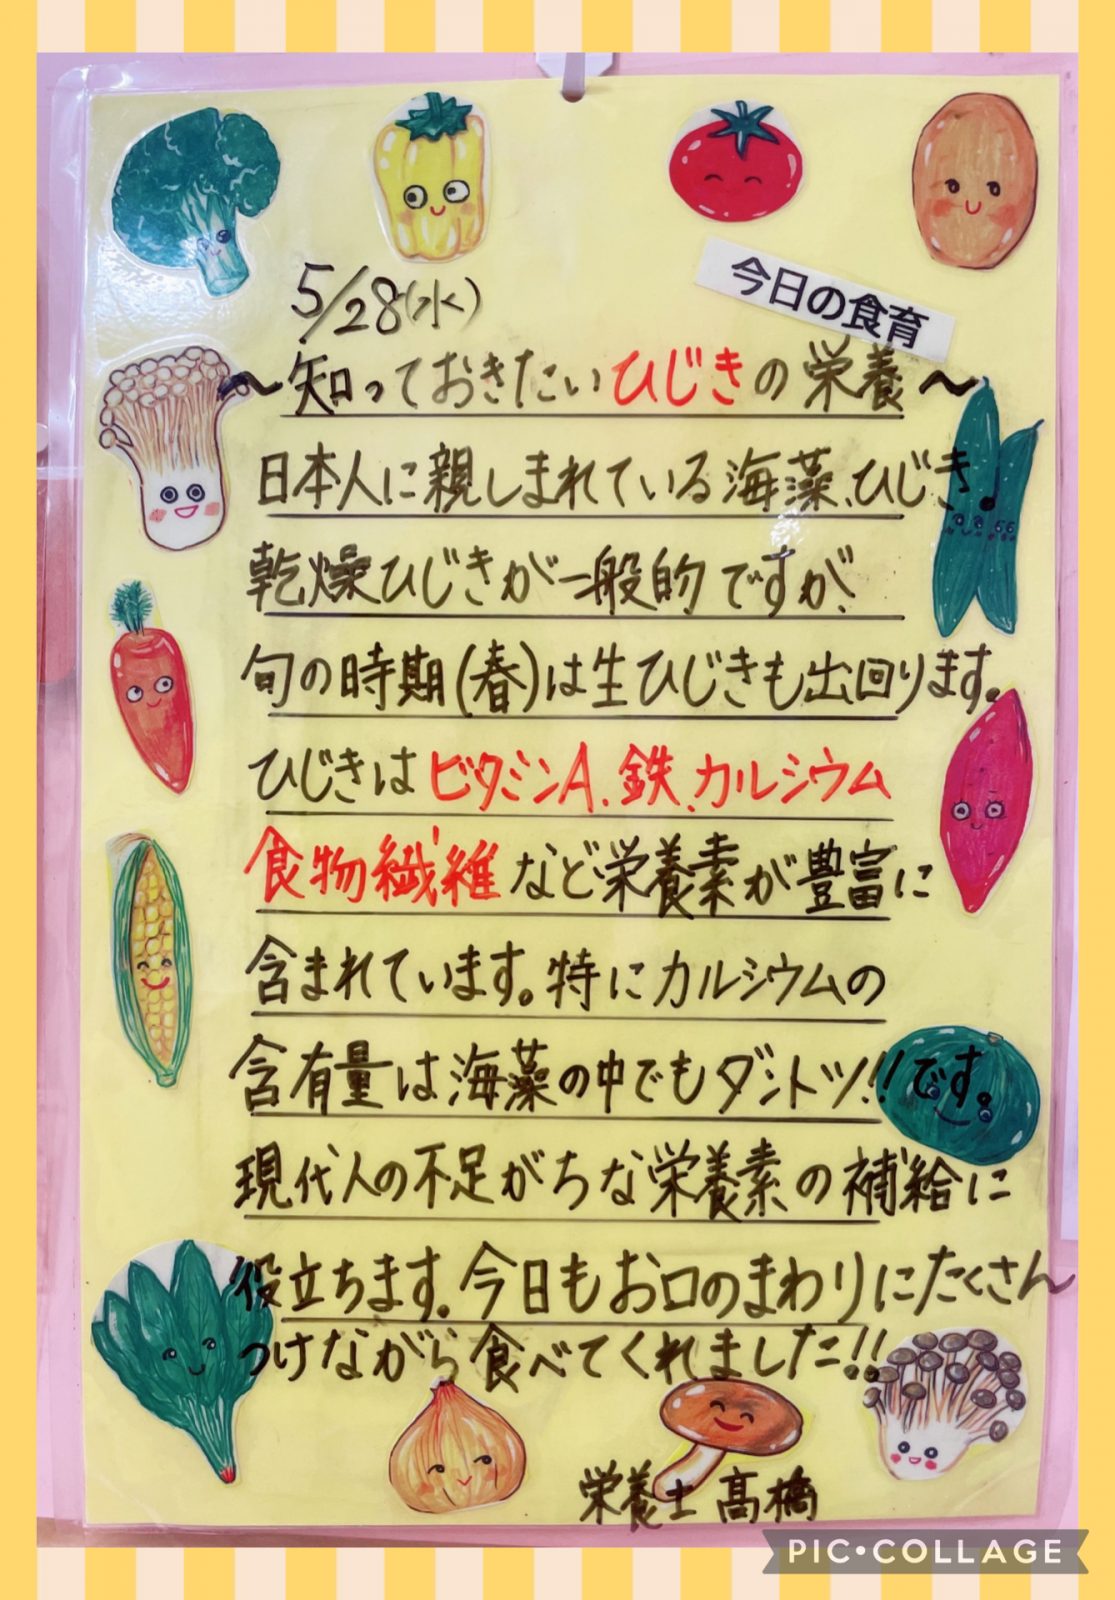 今日の食育
5/28(水)
～知っておきたいひじきの栄養～
日本人に親しまれている海藻、ひじき
乾燥ひじきが一般的ですが、
旬の時期(春)は生ひじきも出回ります。
ひじきはビタミンA、鉄、カルシウム
食物繊維など栄養素が豊富に
含まれています。特にカルシウムの
含有量は海藻の中でもダントツ!!です。
現代人の不足がちな栄養素の補給に
役立ちます。今日もお口のまわりにたくさん
つけながら食べてくれました!!
栄養士 髙橋
PIC•COLLAGE